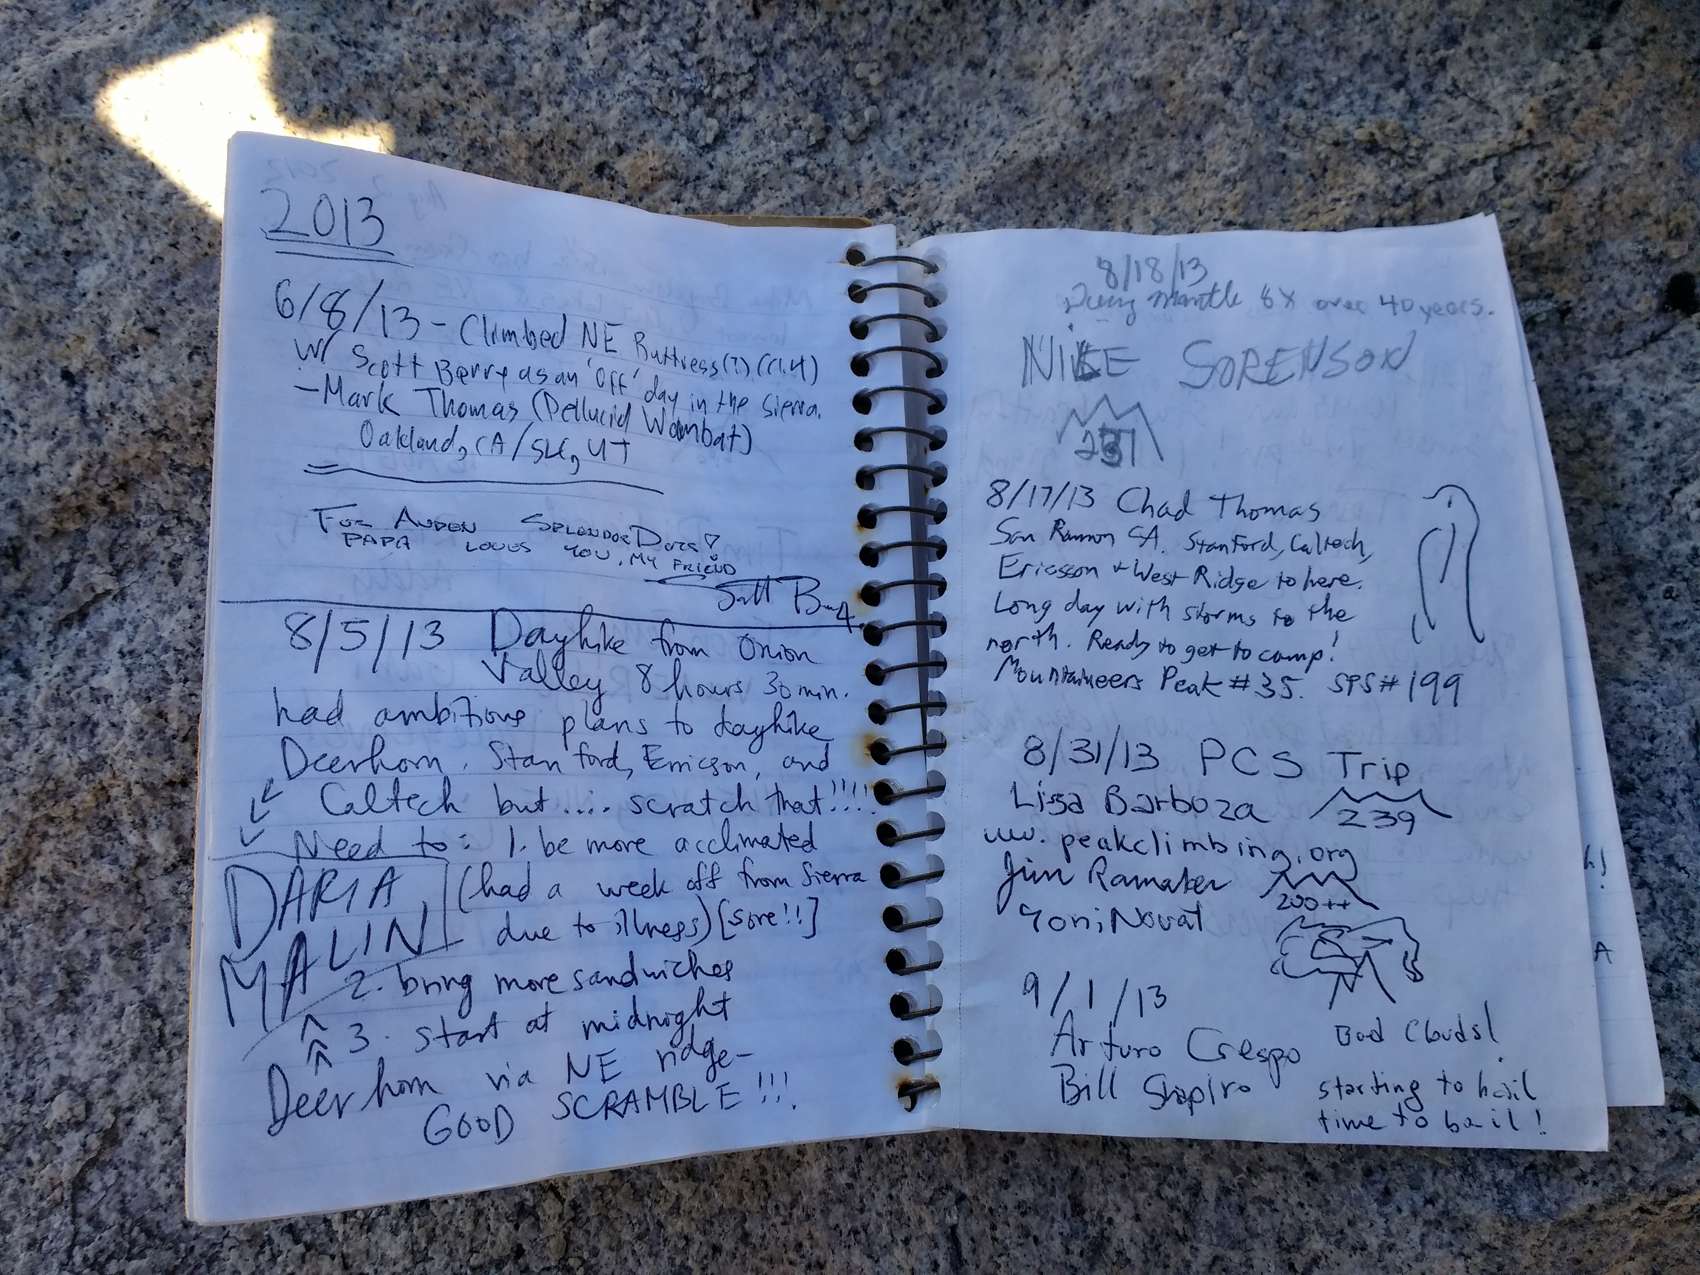 2013
6/8/13 - Climbed NE Buttress(?) (Cl.4)
w/ Scott Berry as an 'off' day in the Sierra.
- Mark Thomas (Pellucid Wombat)
Oakland, CA/SLC, UT
For Auden Splendor
Papa loves you, my friend
Scott
8/5/13 Dayhike from Onion
Valley 8 hours 30 min.
had ambitious plans to dayhike
Deerhorn, Stanford, Ericson, and
Caltech but .... scratch that!!!!
Need to: 1. be more acclimated
(had a week off from Sierra
due to illness) [sore!!]
DARIA
MALIN
2. bring more sandwiches
3. start at midnight
Deerhorn via NE ridge-
GOOD SCRAMBLE!!!
8/18/13
mantle 8X over 40 years.
SORENSON
8/17/13 Chad Thomas
San Ramon CA. Stanford, Caltech,
Ericsson + West Ridge to here.
Long day with storms to the
north. Ready to get to camp!
Mountaineers Peak #35. SPS #199
8/31/13 PCS Trip
Lisa Barboza
239
www.peakclimbing.org
Jim Ramaker
200++
Yoni Novat
9/1/13
Arturo Crespo
Bill Shapiro
Bad Clouds!
starting to hail
time to bail!